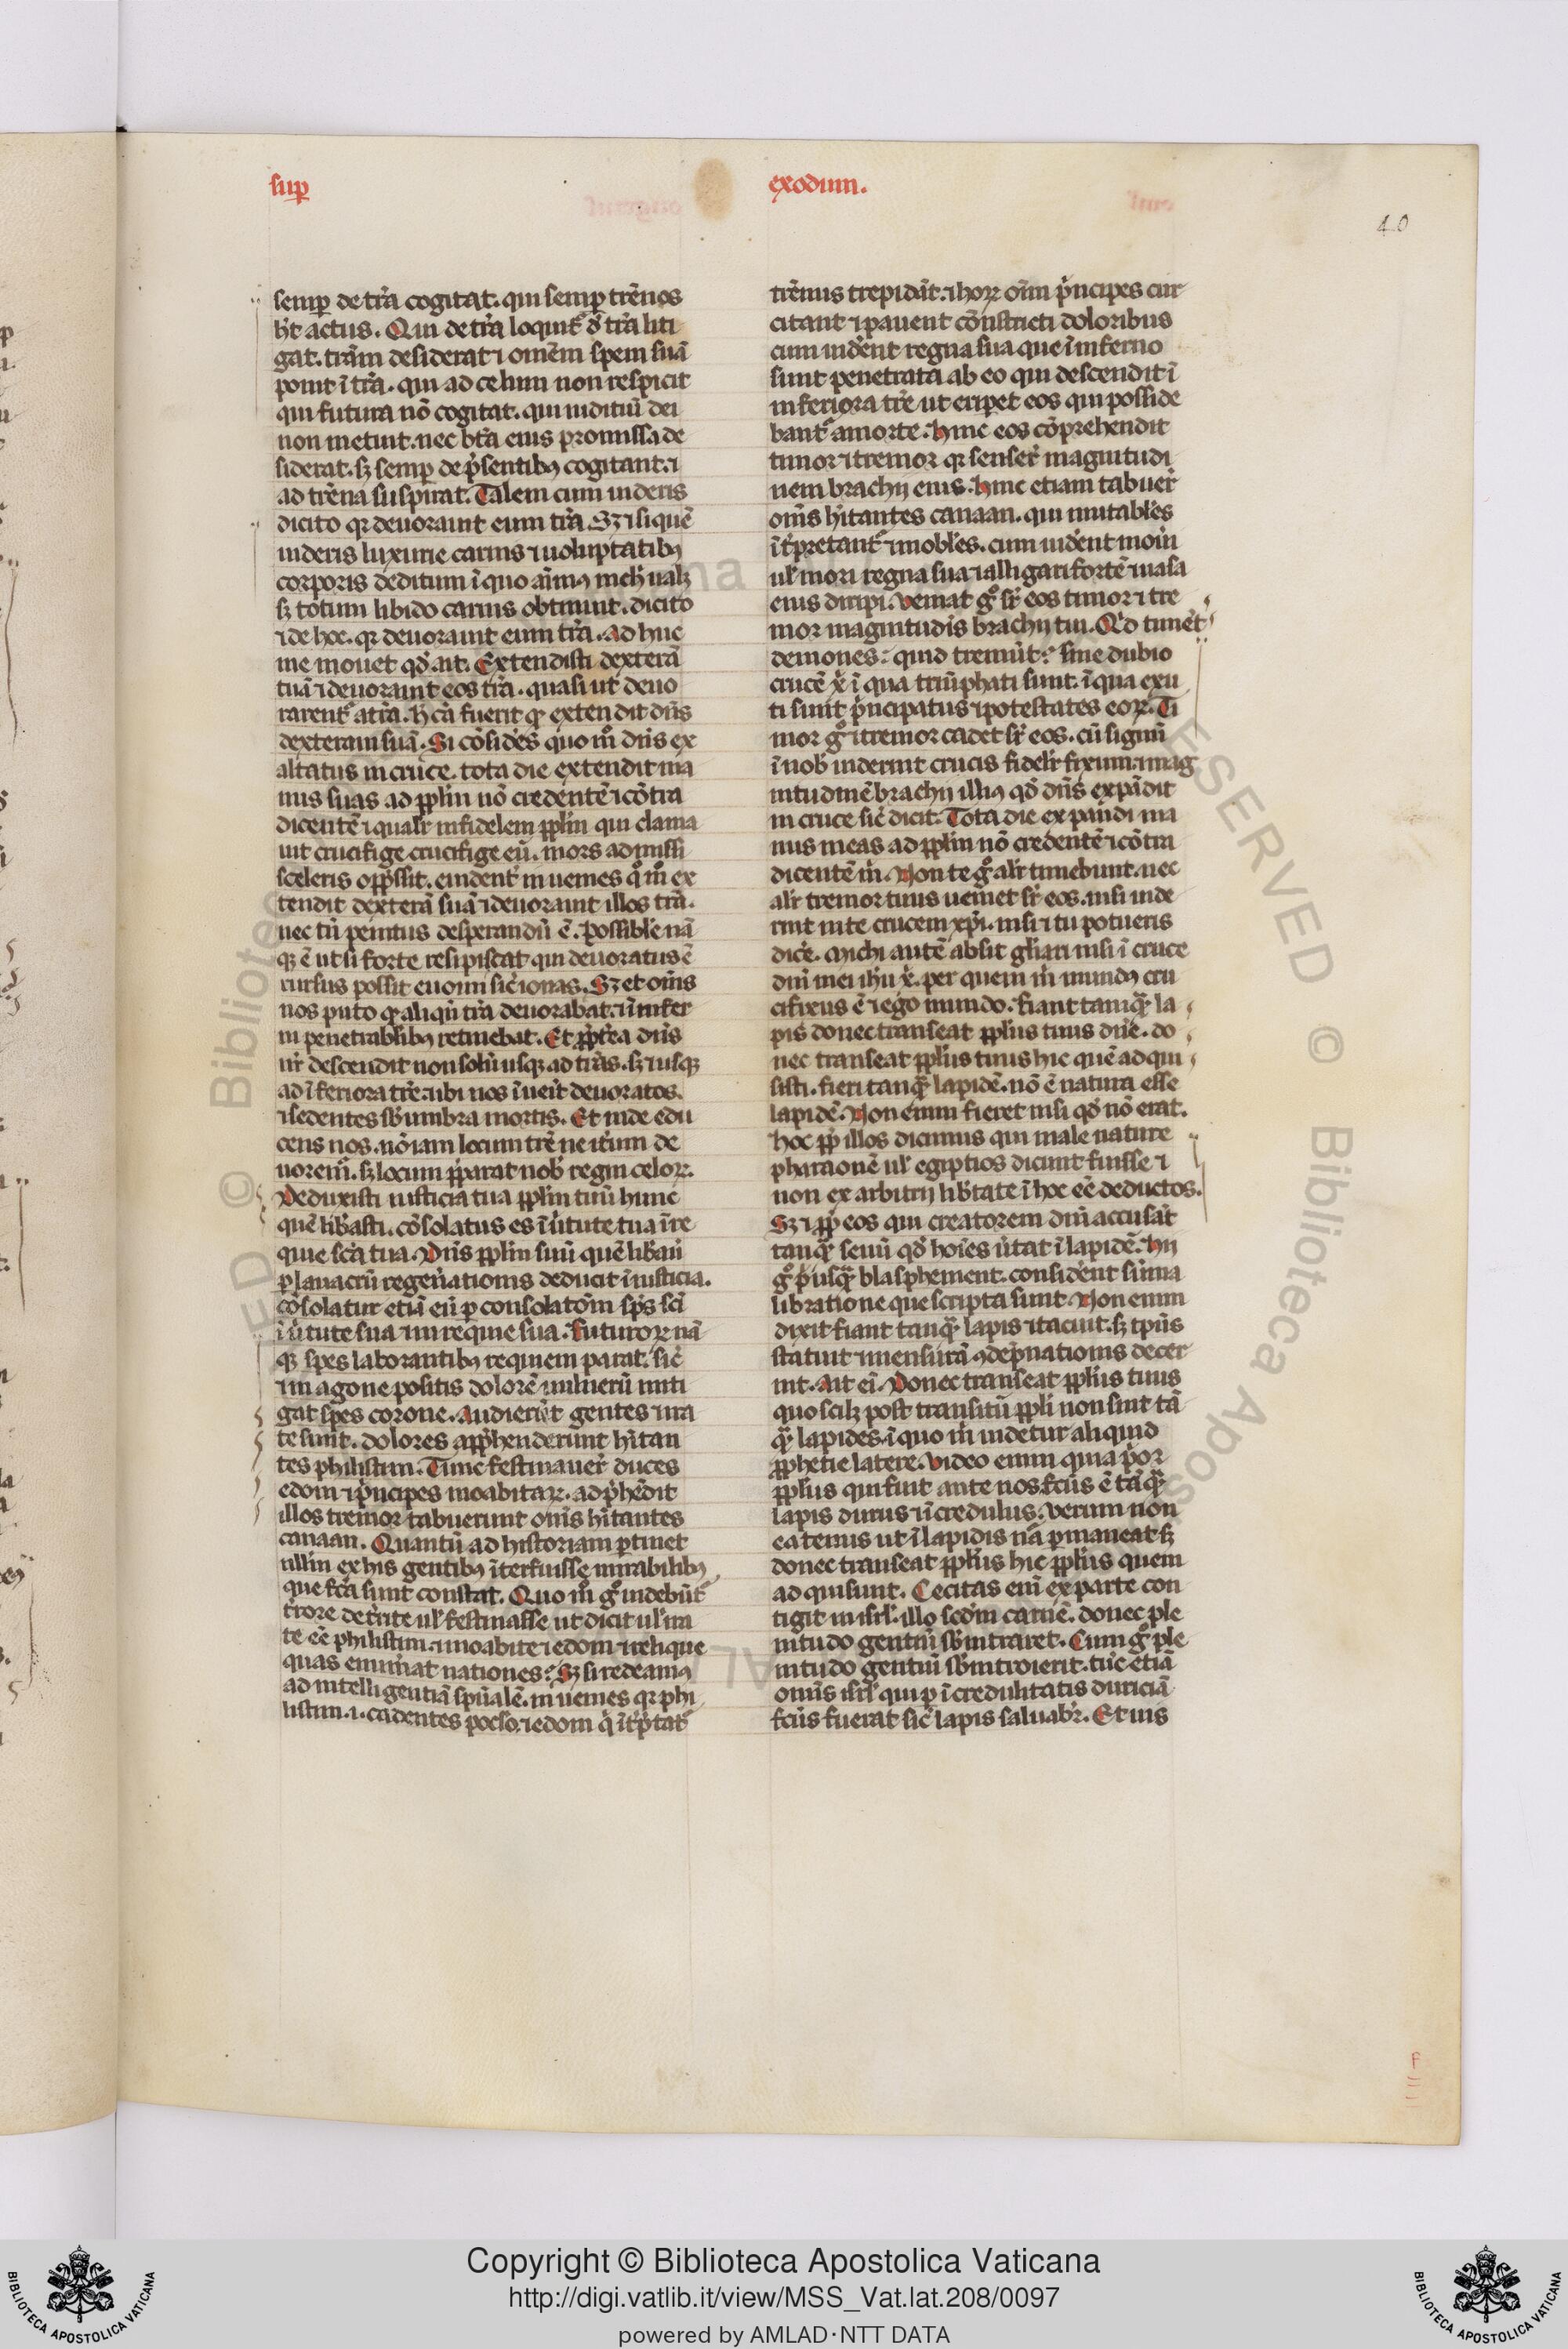 sup
exodum.
40
semp de tr̄a cogitat. qui semp tr̄enos
h̄t actus. Qui de tr̄a loquit᷑ d̄ tr̄a liti
gat. tr̄am desiderat ⁊ omēm spem suā
ponit ī tr̄a. qui ad celum non respicit
qui futura nō cogitat. qui iuditiū dei
non metuit. nec bt̄a eius promissa de
siderat. sꝫ semp de p̄sentibꝰ cogitant. ⁊
ad tr̄ena suspirat. Talem cum uideris
dicito qꝛ deuorauit eum tr̄a. Sꝫ ⁊ si quē
uideris luxurie carnis ⁊ uoluptatibꝰ
corporis deditum ī quo aīmꝰ nich̄ ualꝫ
sꝫ totum libido carnis obtinuit. dicito
⁊ de hoc. qꝛ deuorauit eum tr̄a. Ad huc
me mouet qd̄ ait. Extendisti dexterā
tuā ⁊ deuorauit eos tr̄a. quasi ut deuo
rarent᷑ a tr̄a. h̄ cā fuerit qͥ extendit dn̄s
dexteram suā. Si cōsideres quo m̊ dn̄s ex
altatus in cruce. tota die extendit ma
nus suas ad ꝓplm nō credentē ⁊ cōtra
dicentē ⁊ qualr̄ infidelem ꝓplm qui clama
uit crucifige crucifige eū. mors admissi
sceleris opp̄ssit. euident᷑ inuenies qͦ m̊ ex
tendit dexterā suā ⁊ deuorauit illos tr̄a.
nec tn̄ penitus desperandū ē. possibile nā
qꝫ ē ut si forte resipiscat qui deuoratus ē
rursus possit euomi sic̄ ionas. Sꝫ et om̄s
nos puto qͥ aliqn̄ tr̄a deuorabat. ⁊ ī infer
ni penetralibꝰ retinebat. Et ꝓpt̄ea dn̄s
nr̄ descendit non solū usqꝫ ad tr̄as. sꝫ ⁊ usqꝫ
ad īferiora tr̄e. ubi nos īuēit deuoratos.
⁊ sedentes sb̄ umbra mortis. Et inde edu
cens nos. nō iam locum tr̄e ne it̄um de
uorem̄. sꝫ locum ꝑparat nob̄ regni celoꝝ.
Deduxisti iusticia tua ꝓplm tuū hunc
quē lib̄asti. cōsolatus es ī ūtute tua ī re
quie sc̄a tua. Dn̄s ꝓplm suū quē lib̄aū
ꝑ lauacrū regen̄ationis deducit ī iusticia.
cōsolatur etiā eū ꝑ consolatōm sp̄s sc̄i
ī ūtute sua ⁊ in requie sua. Futuroꝝ nā
qꝫ spes laborantibꝰ requiem parat. sic̄
⁊ in agone positis dolorē uulnerū miti
gat spes corone. Audierūt gentes ⁊ ira
te sunt. dolores app̄henderunt h̄itan
tes philistim. Tunc festinauer̄ duces
edom ⁊ p̄ncipes moabitaꝝ. adp̄hēdit
illos tremor tabuerunt om̄s h̄itantes
canaan. Quantū ad historiam ꝑtinet
ullm ex his gentibꝰ īterfuisse mirabilibꝰ
que fc̄a sunt constat. Quo m̊ gͦ uidebūt᷑
t̄rore det̄rite ul̄ festinasse ut dicit ul̄ ira
te eē philistim. ⁊ moabite ⁊ edom ⁊ relique
quas enum̄at nationes? Sꝫ si redeamꝰ
ad intelligentiā spūalē. inuenies qꝛ phi
listim .i. cadentes poc̄lo. ⁊ edom qͥ īt̄p̄tat᷑
tr̄enus trepidāt. ⁊ hoꝝ om̄m p̄ncipes cur
citant ⁊ pauent cōnstricti doloribus
cum uiderent regna sua que ī inferno
sunt penetrata ab eo qui descendit ī
inferiora tr̄e ut eriperet eos qui posside
bant᷑ a morte. Hinc eos cōprehendit
timor ⁊ tremor qꝛ senser̄ magnitudi
nem brachij eius. Hinc etiam tabuer̄
om̄s h̄itantes canaan. qui mutabiles
īt̄pretant᷑ ⁊ mobiles. cum uiderent moūi
ul̄ mori regna sua ⁊ alligari fortē ⁊ uasa
eius diripi. Veniat gͦ sr̄ eos timor ⁊ tre
mor magnitudis brachij tui. Qd̄ timēt
demones? quid tremūt? sine dubio
crucē x̄i ī qua triūphati sunt. ī qua exu
ti sunt p̄ncipatus ⁊ potestates eoꝝ. Ti
mor gͦ ⁊ tremor cadet sr̄ eos. cū signū
ī nob̄ uiderint crucis fidelr̄ fixum. ⁊ mag
nitudinē brachij illiꝰ qd̄ dn̄s expādit
in cruce sic̄ dicit. Tota die expandi ma
nus meas ad ꝓplm nō credentē ⁊ cōtra
dicentē m̄. Non te gͦ alr̄ timebunt. nec
alr̄ tremor tuus ueniet sr̄ eos. nisi uide
rint in te crucem xp̄i. nisi ⁊ tu potueris
dice. Michi autē absit gl̄iari nisi ī cruce
dn̄i mei ih̄u x̄. per quem m̄ mundꝰ cru
cifixus ē ⁊ ego mundo. Fiant tamqͣ̄ la
pis donec transeat ꝓplus tuus dn̄e. do
nec transeat ꝓplus tuus hic quē adqui
sisti. fieri tanqͣ̄ lapidē. nō ē natura esse
lapidē. Non enim fieret nisi qd̄ nō erat.
hoc ꝓp̄ illos dicimus qui male nature
pharaonē ul̄ egiptios dicunt fuisse ⁊
non ex arbitrij lib̄tate ī hoc eē deductos.
Sꝫ ⁊ ꝓp̄ eos qui creatorem dm̄ accusāt
tanqͣ̄ seuū qd̄ hoīes ūtat ī lapidē. Hij
gͦ p̄usqͣ̄ blasphement. considerent sūma
libratione que scripta sunt. Non enim
dixit fiant tanqͣ̄ lapis ⁊ tacuit. sꝫ tp̄us
statuit ⁊ mensurā ꝯdep̄nationis decer
nit. Ait ei. Donec transeat ꝓplus tuus
quo scilꝫ post transitū ꝓpli non sint tā
qͣ̄ lapides. ī quo m̄ uidetur aliquid
ꝓphetie latere. Video enim quia p̄or
ꝓplus qui fuit ante nos fc̄us ē tāqͣ̄
lapis durus ⁊ īcredulus. Verum non
eatenus ut ī lapidis nā ꝑmaneat sꝫ
donec transeat ꝓplus hic ꝓplus quem
adquisiuit. Cecitas eni᷑ ex parte con
tigit in isrl̄. illo scd̄m carnē. donec ple
nitudo gentiū sb̄intraret. Cum gͦ ple
nitudo gentiū sb̄introierit. tūc etiā
omīs isrl̄ qui ꝑ īcredulitatis duriciā
fc̄us fuerat sic̄ lapis saluabr̄. Et uis
Copyright © Biblioteca Apostolica Vaticana
http://digi.vatlib.it/view/MSS_Vat.lat.208/0097
powered by AMLAD·NTT DATA